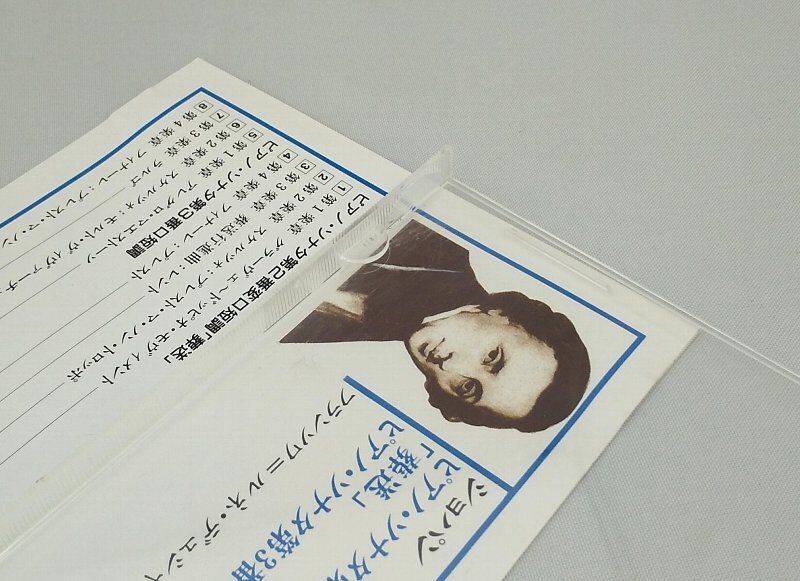 ショパン
ピアノ・ソナタ第
「葬送」
ピアノ・ソナタ第3番
フランソワ=ルネ・デュシ
ピアノ・ソナタ第2番変ロ短調「葬送」
1 第1楽章 グラーヴェ〜ドッピオ・モヴィメント
2 第2楽章 スケルツォ：プレスト・マ・ノン・トロッポ
3 第3楽章 葬送行進曲：レント
4 第4楽章 フィナーレ：プレスト
ピアノ・ソナタ第3番ロ短調
5 第1楽章 アレグロ・マエストーソ
6 第2楽章 スケルツォ：モルト・ヴィヴァーチ
7 第3楽章 ラルゴ
8 第4楽章 フィナーレ：プレスト・マ・ノン